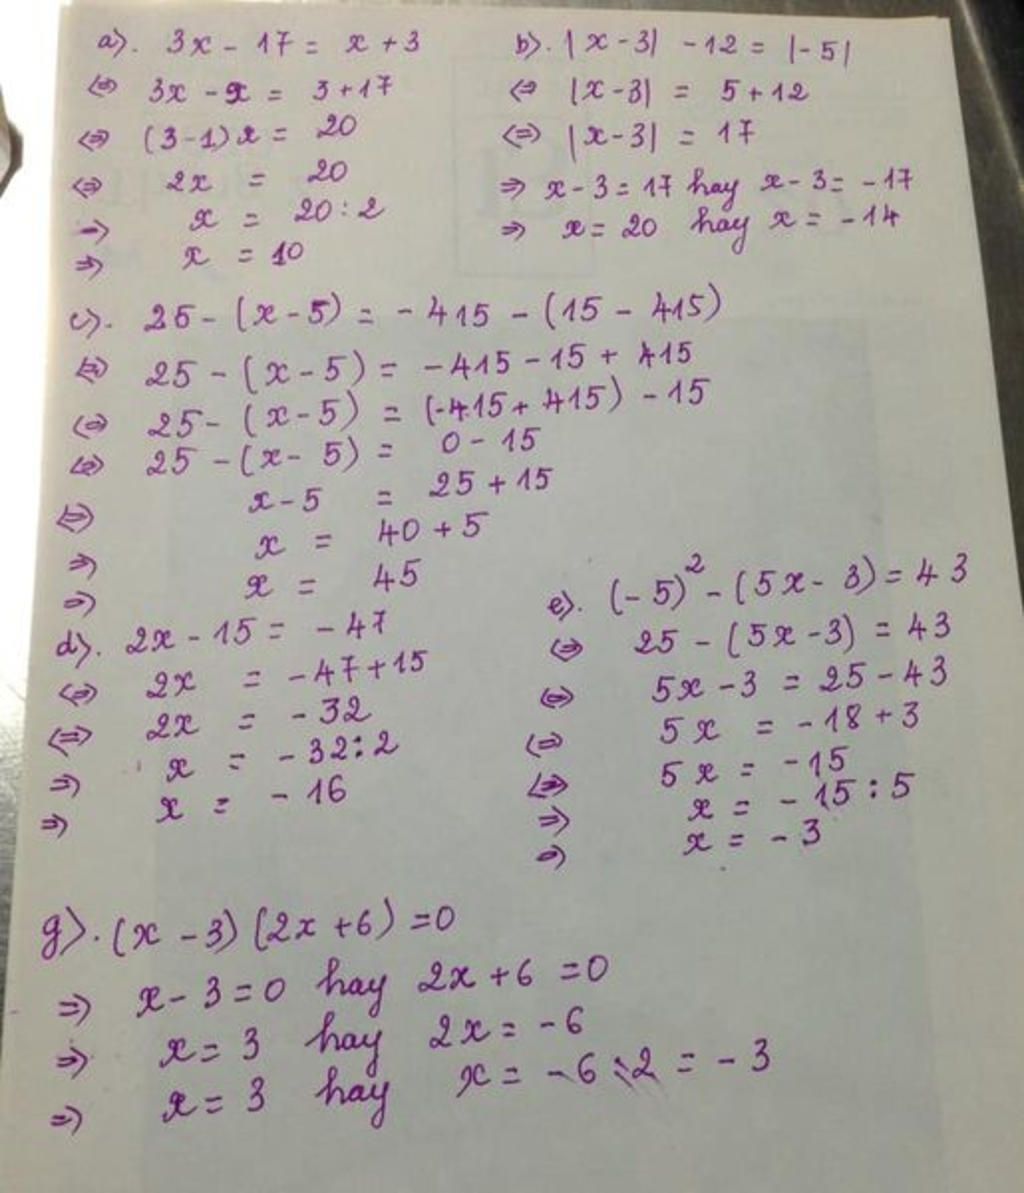 a). 3x - 17 = x + 3
⇔ 3x - x = 3 + 17
⇔ (3-1)x = 20
⇔ 2x = 20
⇒ x = 20 : 2
⇒ x = 10
b). |x - 3| - 12 = |-5|
⇔ |x - 3| = 5 + 12
⇔ |x - 3| = 17
⇒ x - 3 = 17 hay x - 3 = -17
⇒ x = 20 hay x = -14
c). 25 - (x - 5) = - 415 - (15 - 415)
⇔ 25 - (x - 5) = - 415 - 15 + 415
⇔ 25 - (x - 5) = (-415 + 415) - 15
⇔ 25 - (x - 5) = 0 - 15
⇔ x - 5 = 25 + 15
⇒ x = 40 + 5
⇒ x = 45
d). 2x - 15 = - 47
⇔ 2x = - 47 + 15
⇔ 2x = - 32
⇒ x = - 32 : 2
⇒ x = - 16
e). (-5)² - (5x - 3) = 43
⇔ 25 - (5x - 3) = 43
⇔ 5x - 3 = 25 - 43
⇔ 5x = - 18 + 3
⇔ 5x = - 15
⇒ x = - 15 : 5
⇒ x = - 3
g). (x - 3) (2x + 6) = 0
⇒ x - 3 = 0 hay 2x + 6 = 0
⇒ x = 3 hay 2x = - 6
⇒ x = 3 hay x = - 6 : 2 = - 3